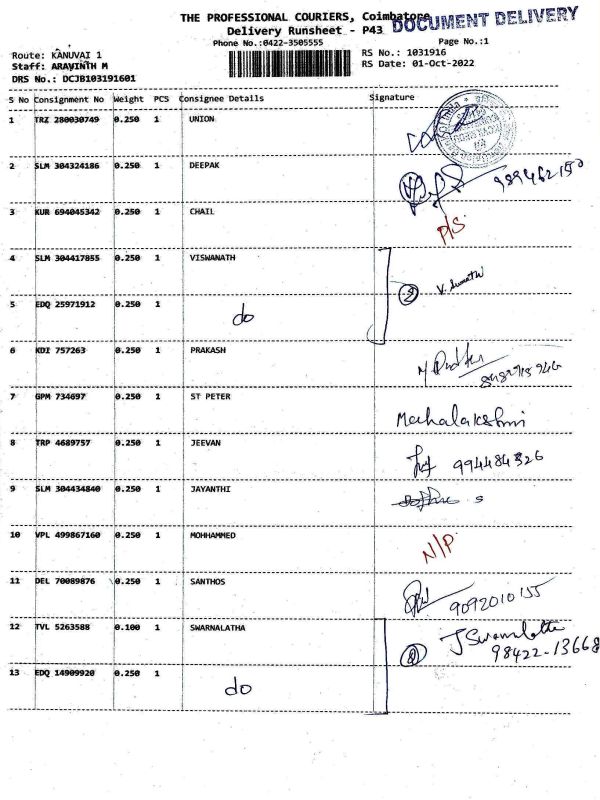 THE PROFESSIONAL COURIERS, Coimbatore
DOCUMENT DELIVERY
Delivery Runsheet - P43
Phone No.:0422-3505555
Page No.:1
Route: KANUVAI 1
RS No.: 1031916
Staff: ARAVINTH M
RS Date: 01-Oct-2022
DRS No.: DCJB103191601
S No Consignment No Weight PCS Consignee Details Signature
1 TRZ 280030749 0.250 1 UNION
2 SLM 304324186 0.250 1 DEEPAK
989462150
3 KUR 694045342 0.250 1 CHAIL
P/S
4 SLM 304417855 0.250 1 VISWANATH
2 V. Sumathi
5 EDQ 25971912 0.250 1
do
6 KDI 757263 0.250 1 PRAKASH
7 GPM 734697 0.250 1 ST PETER
Mahalakshmi
8 TRP 4689757 0.250 1 JEEVAN
994484326
9 SLM 304434840 0.250 1 JAYANTHI
10 VPL 499867160 0.250 1 MOHHAMMED
N/P
11 DEL 70089876 0.250 1 SANTHOS
9092010155
12 TVL 5263588 0.100 1 SWARNALATHA
J Swarnalatha
2 98422-13668
13 EDQ 14909920 0.250 1
do